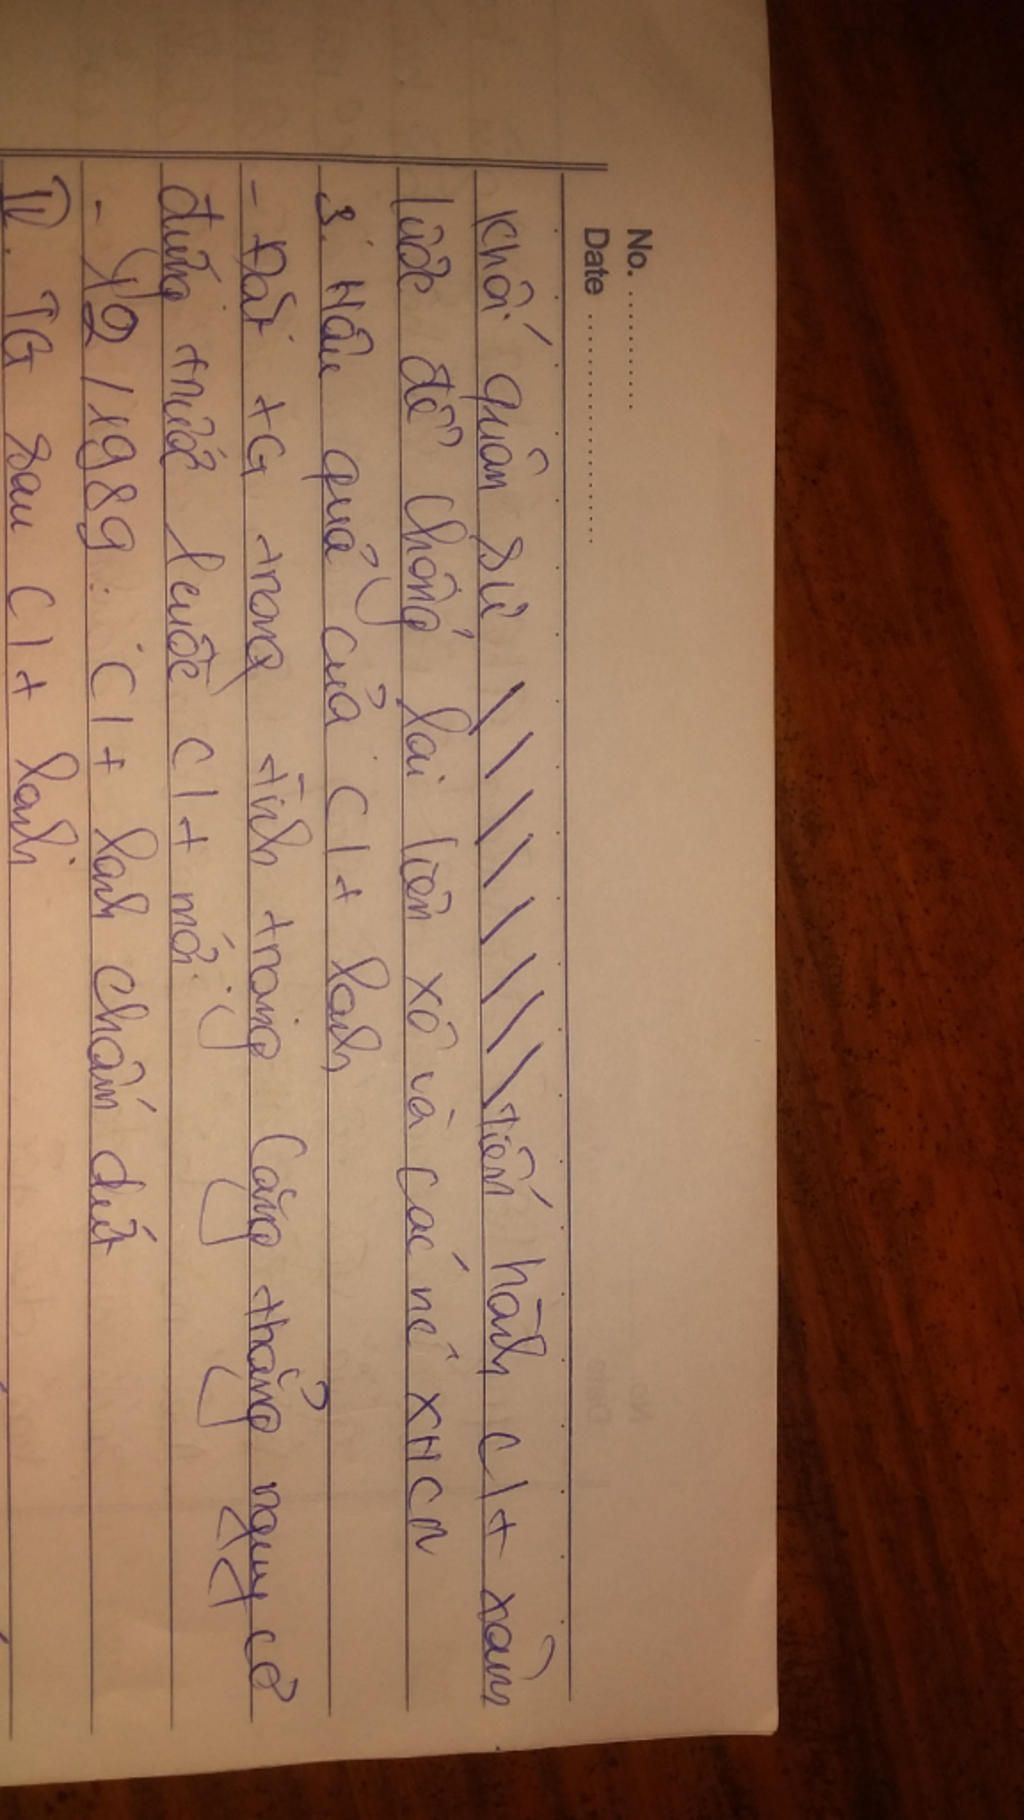 No. ............
Date ....................
khối quân sự tiến hành c/t xâm
lược để chống lại liên xô và các nc XHCN
3. Hậu quả của C/t lạnh
- Đặt tG trong tình trạng căng thẳng nguy cơ
đứng trước 1 cuộc c/t mới.
- 12/1989: C/t lạnh chấm dứt
IV. TG sau C/t lạnh